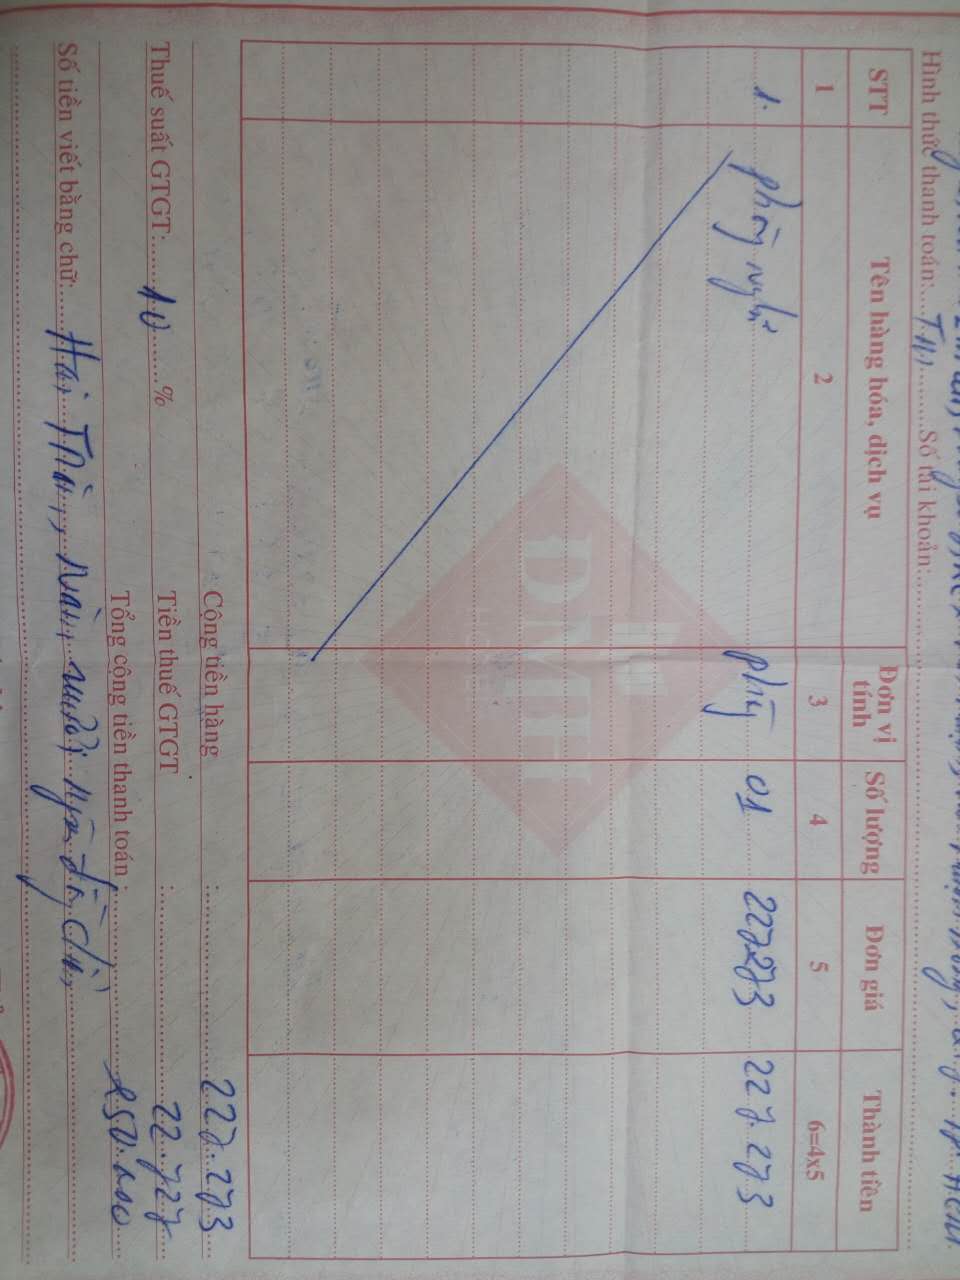 Hình thức thanh toán:....TM.........Số tài khoản:
STT Tên hàng hóa, dịch vụ Đơn vị tính Số lượng Đơn giá Thành tiền
1 2 3 4 5 6=4x5
1. phòng nghỉ phòng 01 227273 227.273
ĐMH
Cộng tiền hàng : 227.273
Thuế suất GTGT: 10 % Tiền thuế GTGT : 22.727
Tổng cộng tiền thanh toán : 250.000
Số tiền viết bằng chữ: Hai Trăm, Năm mươi nghìn đồng chẵn